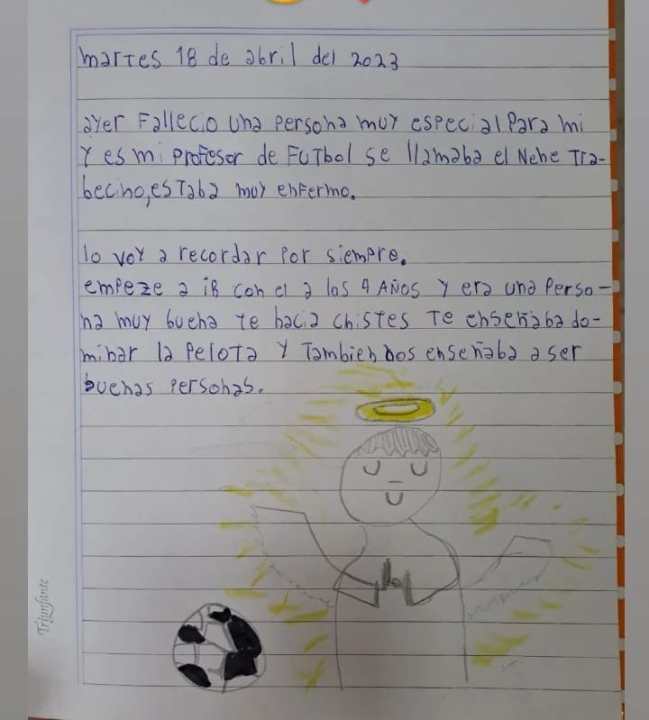 martes 18 de abril del 2023
ayer Fallecio una persona muy especial Para mi
Y es mi Profesor de FuTbol se llamaba el Nene Tra-
becino, esTaba muy enfermo.
lo voy a recordar Por siempre.
empeze a iR con el a los 4 AÑos Y era una Perso-
na muy buena Te hacia chisTes Te enseñaba do-
minar la PeloTa Y Tambien nos enseñaba a ser
buenas Personas.
Triunfante